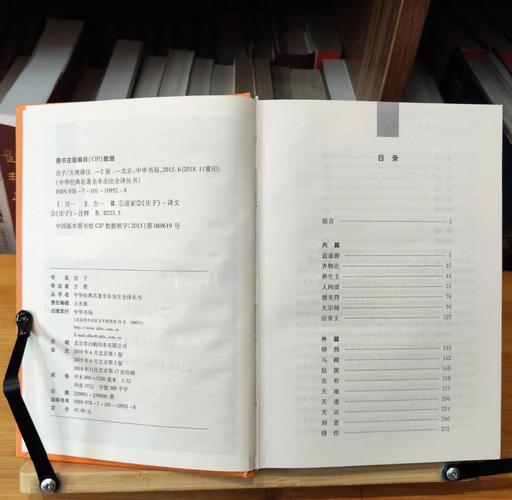 图书在版编目(CIP)数据
庄子/方勇译注.—2版.—北京:中华书局,2015.6(2018.11重印)
(中华经典名著全本全注全译丛书)
ISBN 978-7-101-10952-8
Ⅰ.庄… Ⅱ.方… Ⅲ.①道家②《庄子》-译文
③《庄子》-注释 Ⅳ.B223.5
中国版本图书馆CIP数据核字(2015)第089619号
书名 庄子
译注者 方勇
丛书名 中华经典名著全本全注全译丛书
责任编辑 王水涣
出版发行 中华书局
(北京市丰台区太平桥西里38号 100073)
http://www.zhbc.com.cn
E-mail:zhbc@zhbc.com.cn
印刷 北京市白帆印务有限公司
版次 2010年6月北京第1版
2015年6月北京第2版
2018年11月北京第17次印刷
规格 开本880×1230毫米 1/32
字数388千字
印数 229001-259000册
国际书号 ISBN 978-7-101-10952-8
定价 45.00元
目录
前言 1
内篇
逍遥游 1
齐物论 15
养生主 44
人间世 52
德充符 78
大宗师 94
应帝王 122
外篇
骈拇 135
马蹄 145
胠箧 151
在宥 161
天地
天道
天运 224
刻意 246
缮性 252